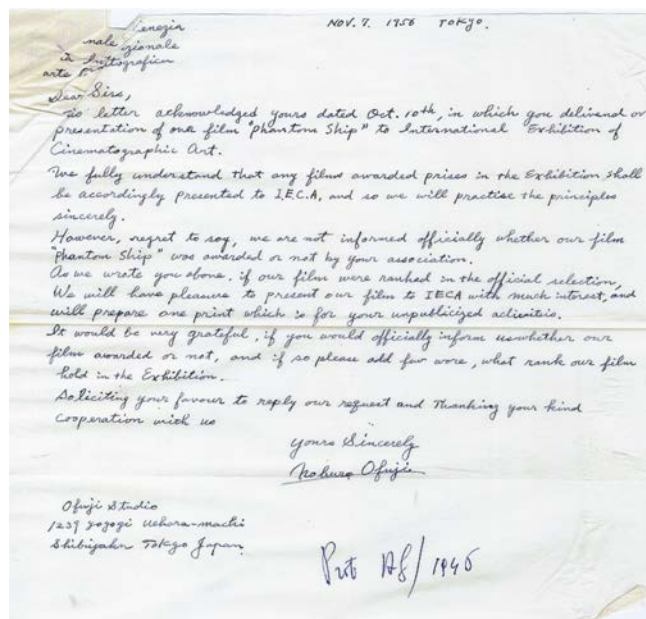 NOV. 7. 1956 TOKYO.
enezia
nale zionale
arte
Dear Sirs,
letter acknowledged yours dated Oct. 10th, in which you
presentation of our film "Phantom Ship" to International Exhibition of
Cinematographic Art.
We fully understand that any films awarded prises in the Exhibition shall
be accordingly presented to I.E.C.A, and so we will practise the principles
sincerely.
However, regret to say, we are not informed officially whether our film
"Phantom Ship" was awarded or not by your association.
As we wrote you above, if our film were ranked in the official selection,
We will have pleasure to present our film to IECA with much interest, and
will prepare one print which is for your unpublicized activities.
It would be very grateful, if you would officially inform us whether our
film awarded or not, and if so please add few wore, what rank our film
hold in the Exhibition.
Soliciting your favour to reply our request and Thanking your kind
Cooperation with us
Yours Sincerely
Noburo Ofuji
Ofuji Studio
1239 Yoyogi Uehara-machi
Shibuyaku Tokyo Japan
Prot /1946